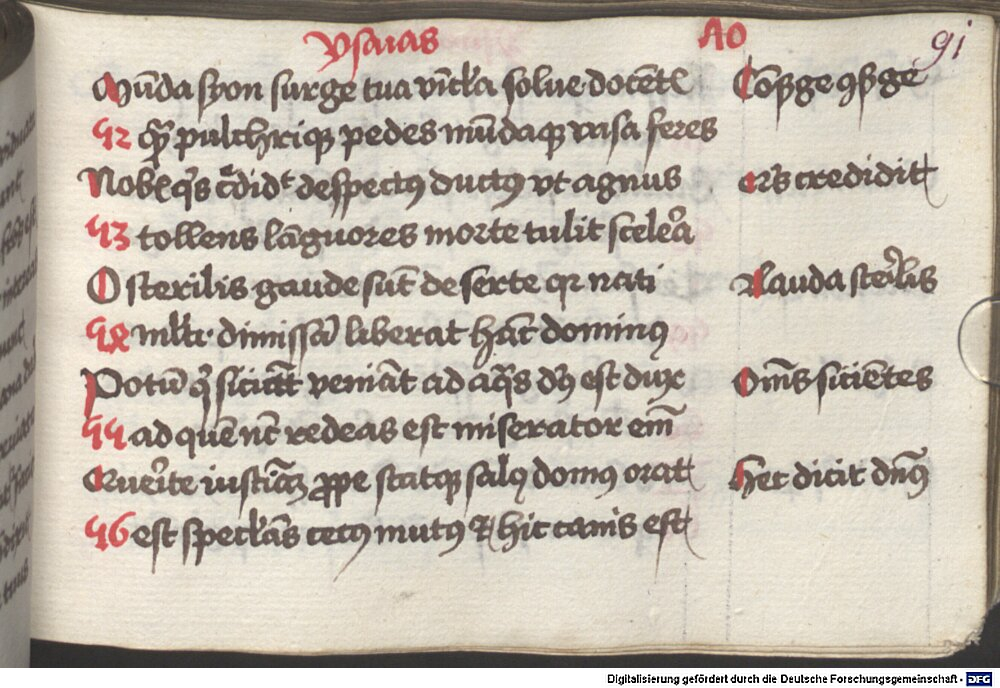 ysaias AO 91
Mūda syon surge tua vīcl'a solue docēt Cōsurge 9surge
52 quam pulchrique pedes mūdaque vasa feres
Nobis quis c'didt despectus ductus vt agnus Quis credidit
53 tollens lāguores morte tulit scelera
O sterilis gaude sūt deserte qr nati Lauda sterilis
54 mltr dimissā liberat hāc dominus
Potū qui siciāt veniāt ad aquas deus est dux Omēs sicientes
55 ad quē nūc redeas est miserator eni
Quer̄ite iusticiā prope statque salus domus orat Hec dicit dn̄us
56 est specl'ās cecus mutus & hic canis est
Digitalisierung gefördert durch die Deutsche Forschungsgemeinschaft - DFG